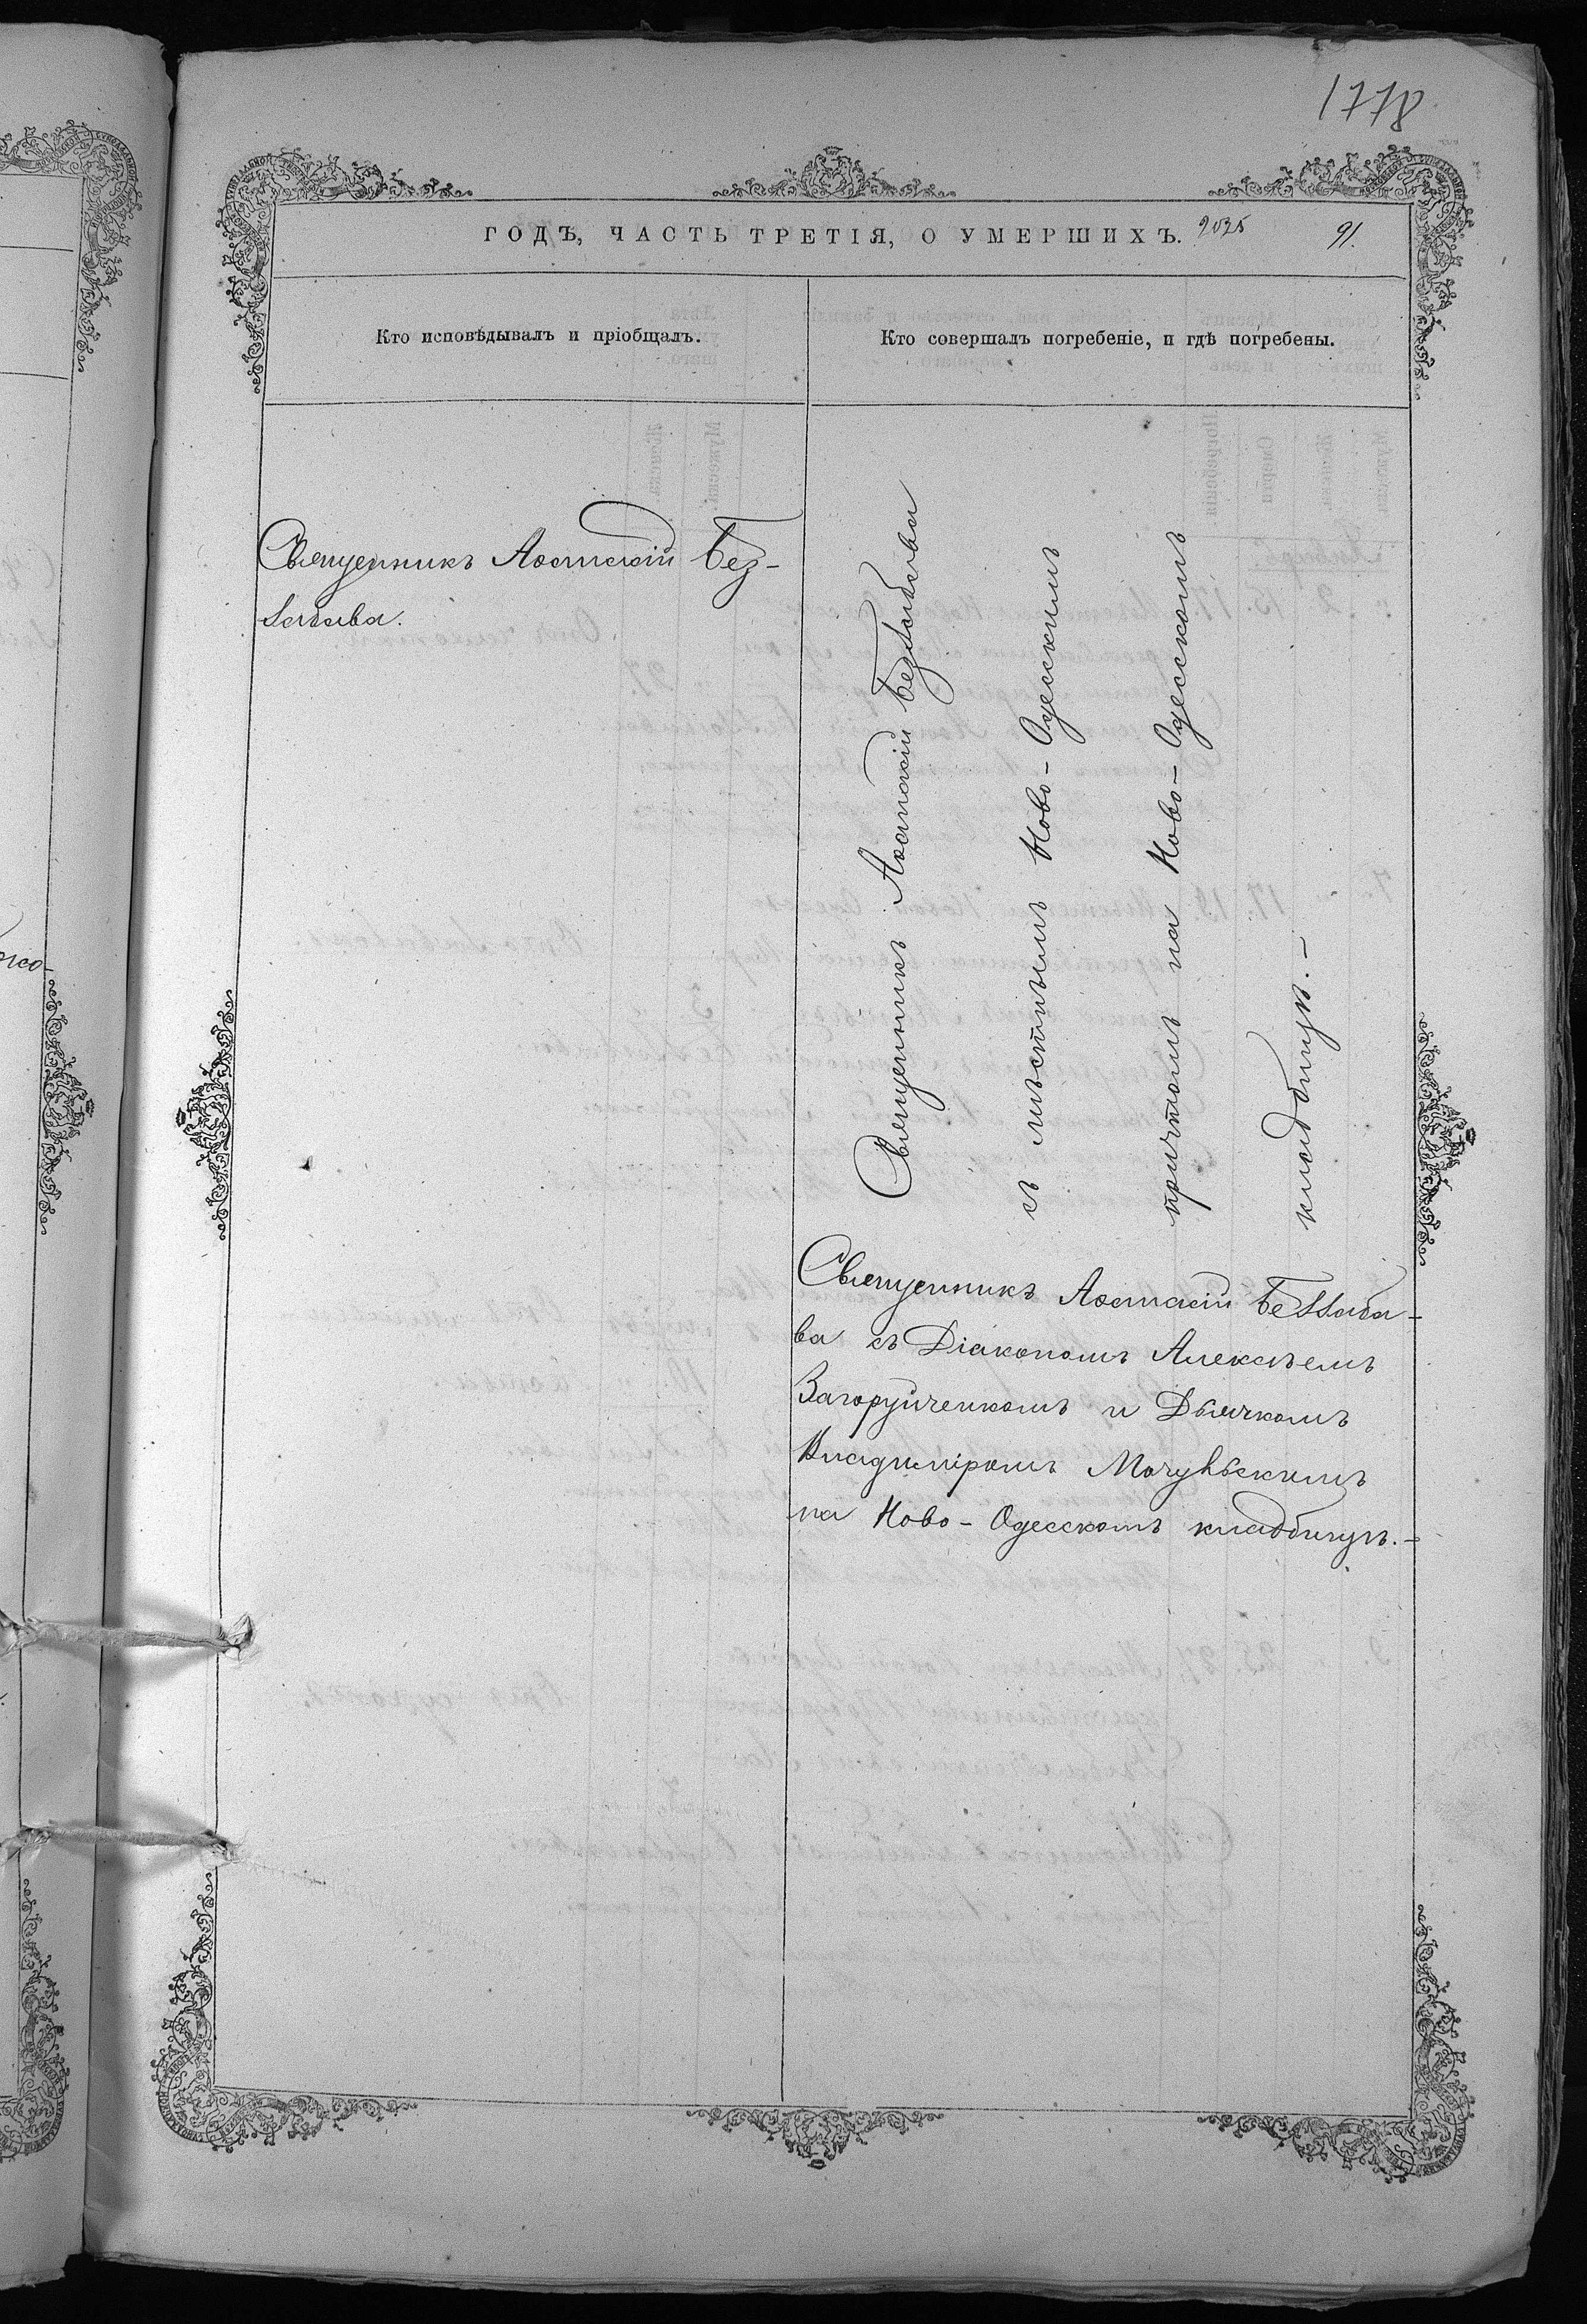 1778
ГОДЪ, ЧАСТЬ ТРЕТІЯ, О УМЕРШИХЪ. 91.
Кто исповѣдывалъ и пріобщалъ.
Кто совершалъ погребеніе, и гдѣ погребены.
Священникъ
Священникъ
съ мѣстнымъ Ново-Одесскимъ
причтомъ на Ново-Одесскомъ
кладбищѣ.-
Священникъ
ва съ Діакономъ Алексѣемъ
Загоруйченкомъ и Дьячкомъ
Владиміромъ
на Ново-Одесскомъ кладбищѣ.-